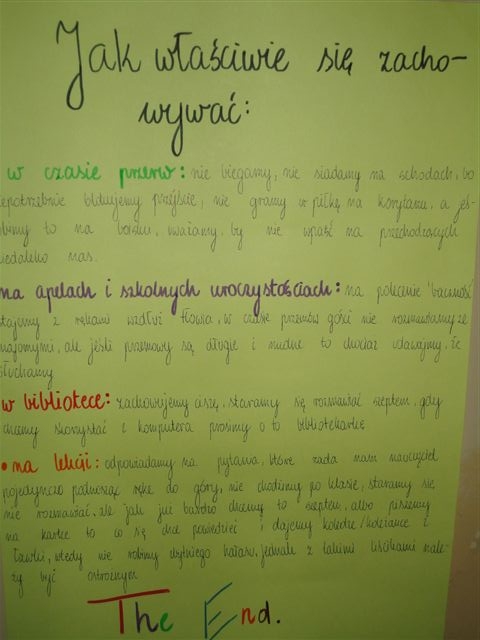 Jak właściwie się zacho-
wywać:
w czasie przerw: nie biegamy, nie siadamy na schodach, bo
niepotrzebnie blokujemy przejście, nie gramy w piłkę na korytarzu, a jeś-
robimy to na boisku, uważamy, by nie wpaść na przechodzących
niedaleko nas.
na apelach i szkolnych uroczystościach: na polecenie "baczność"
stajemy z rękami wzdłuż tłowia, w czasie przemów gości nie rozmawiamy ze
znajomymi, ale jeśli przemowy są długie i nudne to chociaż udawajmy, że
słuchamy
w bibliotece: zachowujemy ciszę, staramy się rozmawiać szeptem, gdy
chcemy skorzystać z komputera prosimy o to bibliotekarkę
• na lekcji: odpowiadamy na pytania, które zada nam nauczyciel
pojedynczo podnosząc rękę do góry, nie chodzimy po klasie, staramy się
nie rozmawiać, ale jak już bardzo chcemy to szeptem, albo piszemy
na kartce to co się chce powiedzieć i dajemy koledze/koleżance z
ławki, wtedy nie robimy zbytniego hałasu, jednak z takimi liścikami nale-
ży być ostrożnym
The End.